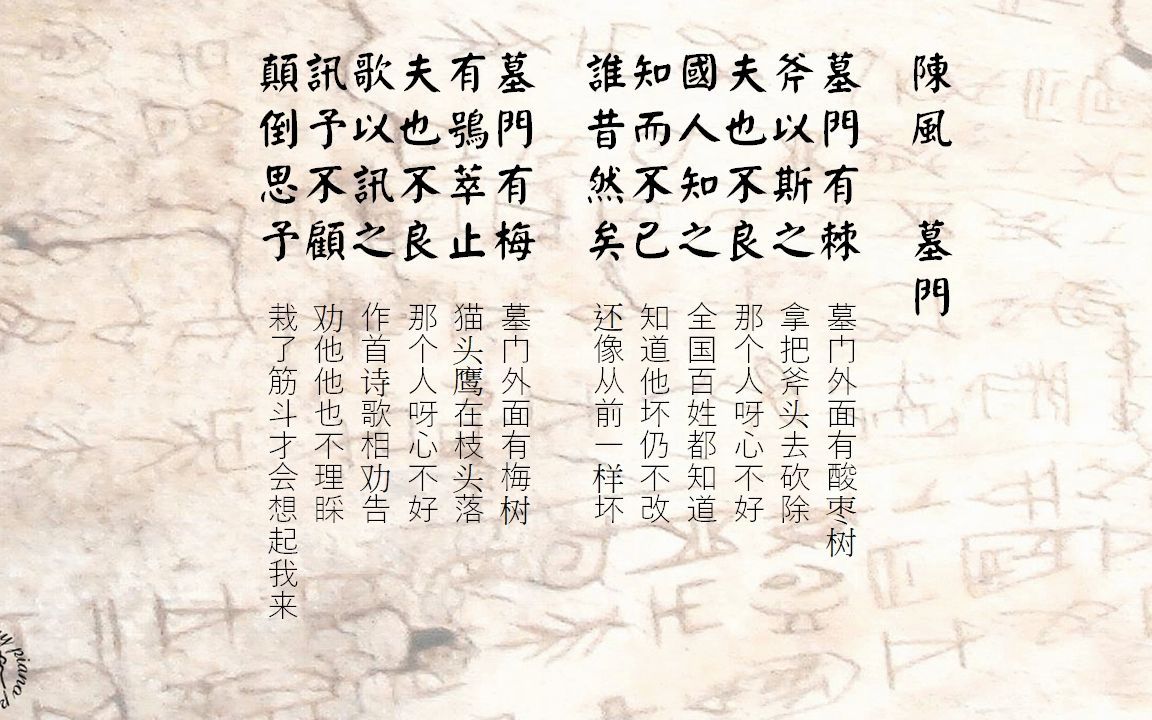 陳風　墓門
墓門有棘
斧以斯之
夫也不良
國人知之
知而不已
誰昔然矣
墓门外面有酸枣树
拿把斧头去砍除
那个人呀心不好
全国百姓都知道
知道他坏仍不改
还像从前一样坏
墓門有梅
有鴞萃止
夫也不良
歌以訊之
訊予不顧
顛倒思予
墓门外面有梅树
猫头鹰在枝头落
那个人呀心不好
作首诗歌相劝告
劝他他也不理睬
栽了筋斗才会想起我来
piano